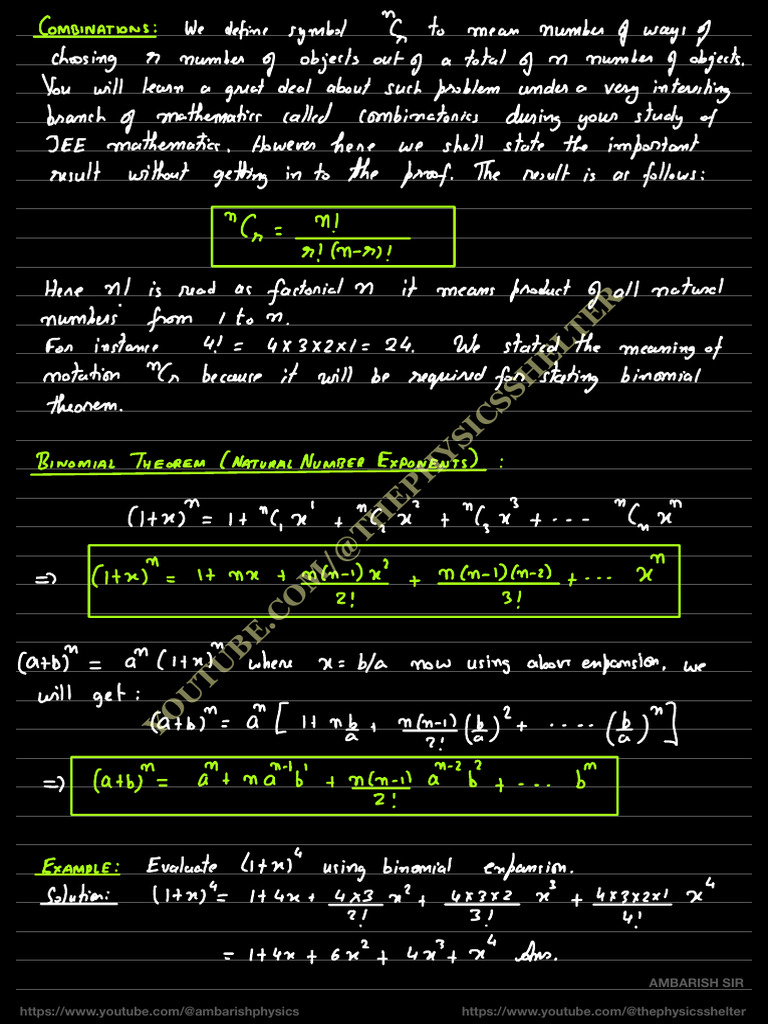 COMBINATIONS: We define symbol ⁿCᵣ to mean number of ways of
choosing r number of objects out of a total of n number of objects.
You will learn a great deal about such problem under a very interesting
branch of mathematics called combinatorics during your study of
JEE mathematics. However here we shall state the important
result without getting in to the proof. The result is as follows:
ⁿCᵣ = n! / r! (n-r)!
Here n! is read as factorial n it means product of all natural
numbers from 1 to n.
For instance 4! = 4×3×2×1 = 24. We stated the meaning of
notation ⁿCᵣ because it will be required for stating binomial
theorem.
BINOMIAL THEOREM (NATURAL NUMBER EXPONENTS) :
(1+x)ⁿ = 1 + ⁿC₁ x¹ + ⁿC₂ x² + ⁿC₃ x³ + ... ⁿCₙ xⁿ
=> (1+x)ⁿ = 1 + nx + n(n-1)x²/2! + n(n-1)(n-2)/3! + ... xⁿ
(a+b)ⁿ = aⁿ (1+x)ⁿ where x = b/a now using above expansion, we
will get:
(a+b)ⁿ = aⁿ [ 1 + n b/a + n(n-1)/2! (b/a)² + .... (b/a)ⁿ ]
=> (a+b)ⁿ = aⁿ + n aⁿ⁻¹ b¹ + n(n-1)/2! aⁿ⁻² b² + ... bⁿ
EXAMPLE: Evaluate (1+x)⁴ using binomial expansion.
Solution: (1+x)⁴ = 1 + 4x + 4×3/2! x² + 4×3×2/3! x³ + 4×3×2×1/4! x⁴
= 1 + 4x + 6x² + 4x³ + x⁴ Ans.
YOUTUBE.COM/@THEPHYSICSSHELTER
AMBARISH SIR
https://www.youtube.com/@ambarishphysics https://www.youtube.com/@thephysicsshelter